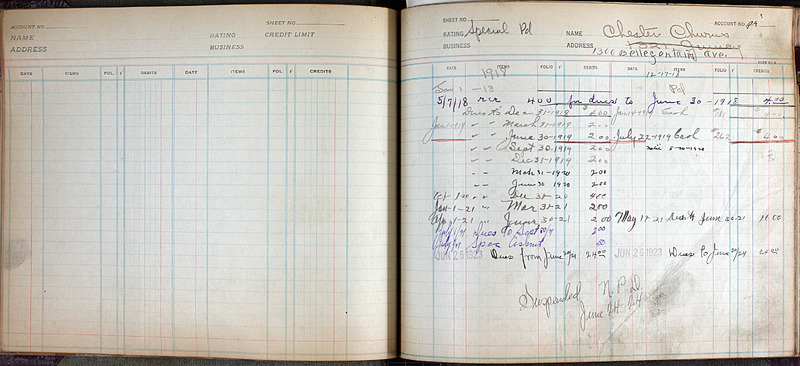 ACCOUNT NO. SHEET NO.
NAME RATING CREDIT LIMIT
ADDRESS BUSINESS
DATE ITEMS FOL. DEBITS DATE ITEMS FOL. CREDITS
SHEET NO. ACCOUNT NO.
RATING Special Pd NAME Chester
BUSINESS ADDRESS
1300 Bellefontaine Ave.
DATE ITEMS FOLIO DEBITS DATE ITEMS FOLIO CREDITS
1918 12-17-18
Jan 1 -18 Pd
5/7/18 rec 400 for dues to June 30-1918 4.00
Dues to Dec 31-1918 400 Jan 14 1919 Cash 181 400
Jan 1-1919 " " March 31-1919 200
" " June 30-1919 2.00 July 22-1919 Cash #262 $4.00
" " Sept 30-1919 200
" " Dec 31-1919 200
" " Mch 31-1920 200
" " June 30 1920 200
Dec 31-20 400
Jan-1-21 " Mar 31-21 200
Apr-1-21 " June 30-21 200 May 17 21 June 30.21 16.00
Dues to Sept 200
Spec 50
JUN 26 1923 Dues from June 24 24.00 JUN 26 1923 Dues to June 30/24 24.00
Suspended N.P.D.
June 24-24